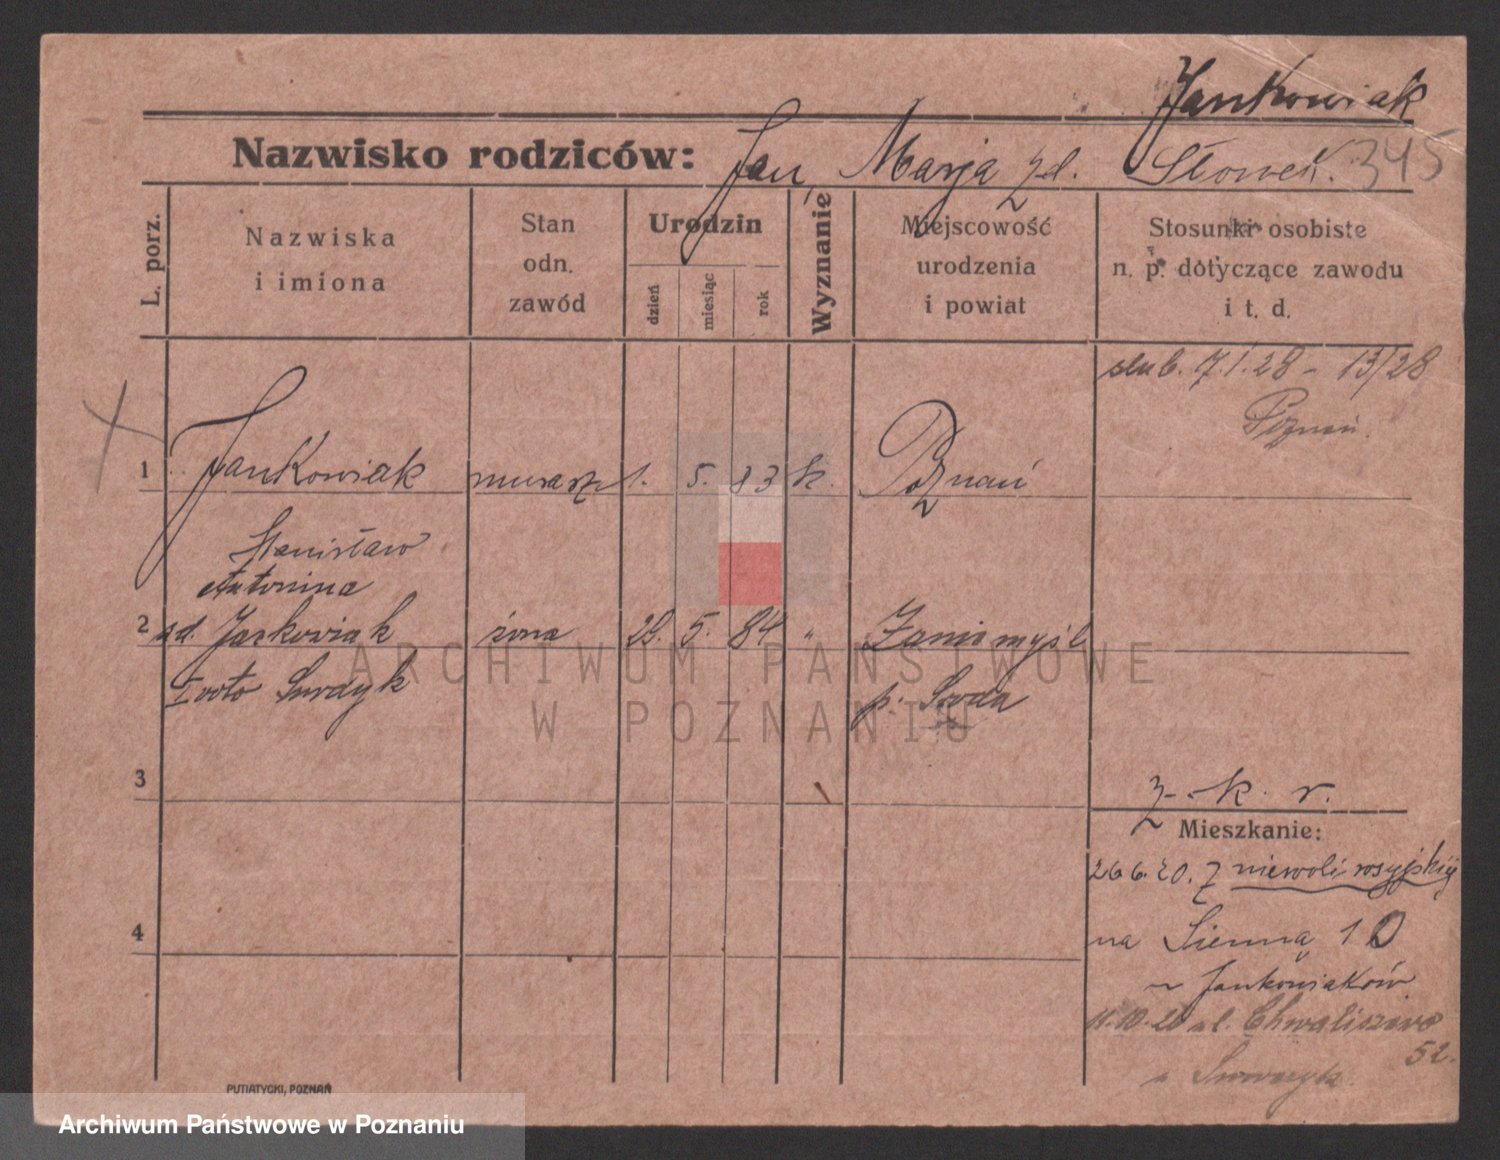 Jankowiak
Nazwisko rodziców: Jan, Marja zd. Słomek. 345
L. porz.
Nazwiska i imiona
Stan odn. zawód
Urodzin
dzień miesiąc rok
Wyznanie
Miejscowość urodzenia i powiat
Stosunki osobiste n. p. dotyczące zawodu i t. d.
ślub. 7.1.28 - 13/28
Poznań.
1 Jankowiak murarz 1. 5. 83 k. Poznań
Stanisław
Antonina
2 zd. Jaskowiak żona 28. 5. 84 " Zaniemyśl
I voto Smrdyk p. Środa
3
z. k. r.
Mieszkanie:
26.6.20. z niewoli rosyjskiej
4
na Sienną 10
Jankowiaków
11.10.20 ul. Chwaliszewo
52.
PUTIATYCKI, POZNAŃ
ARCHIWUM PAŃSTWOWE
W POZNANIU
Archiwum Państwowe w Poznaniu